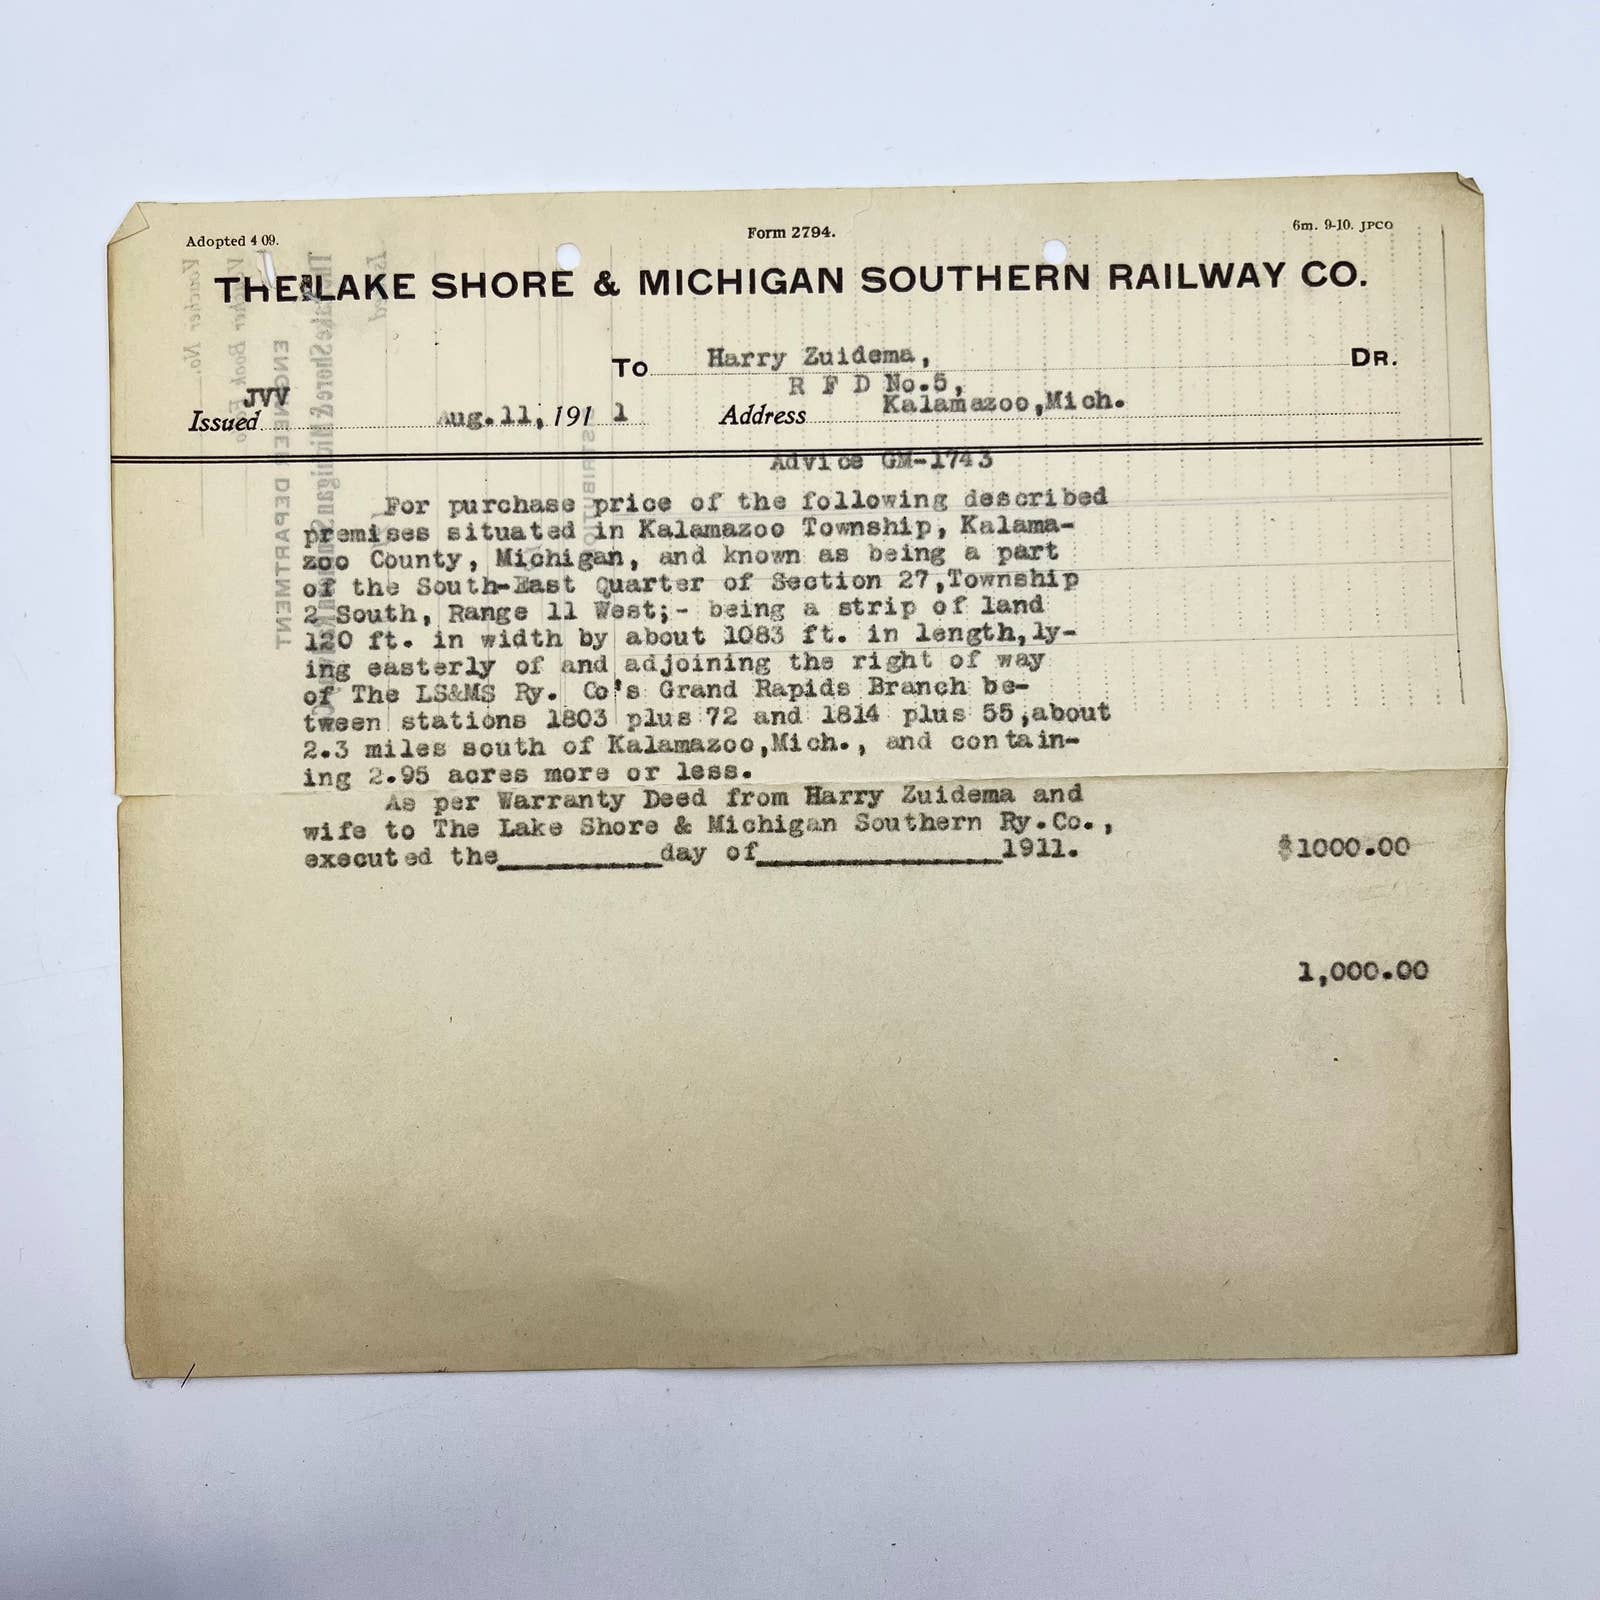 Adopted 4 09.
Form 2794.
6m. 9-10. JPCO
THE LAKE SHORE & MICHIGAN SOUTHERN RAILWAY CO.
To Harry Zuidema, DR.
R F D No.5,
JVV
Issued Aug.11, 1911 Address Kalamazoo,Mich.
Advice GM-1743
For purchase price of the following described
premises situated in Kalamazoo Township, Kalama-
zoo County, Michigan, and known as being a part
of the South-East Quarter of Section 27,Township
2 South, Range 11 West;- being a strip of land
120 ft. in width by about 1083 ft. in length,ly-
ing easterly of and adjoining the right of way
of The LS&MS Ry. Co's Grand Rapids Branch be-
tween stations 1803 plus 72 and 1814 plus 55,about
2.3 miles south of Kalamazoo,Mich., and contain-
ing 2.95 acres more or less.
As per Warranty Deed from Harry Zuidema and
wife to The Lake Shore & Michigan Southern Ry.Co.,
executed the__________day of_______________1911. $1000.00
1,000.00
ENGINEER DEPARTMENT
The Lake Shore & Michigan Southern
Voucher No.